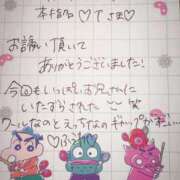 本指名♡でさま♡
お誘い頂いて
ありがとうございました!
今回もいっぱいお兄さんに
いたずらされた
クールなのとえっちなの ギャップがたまら…